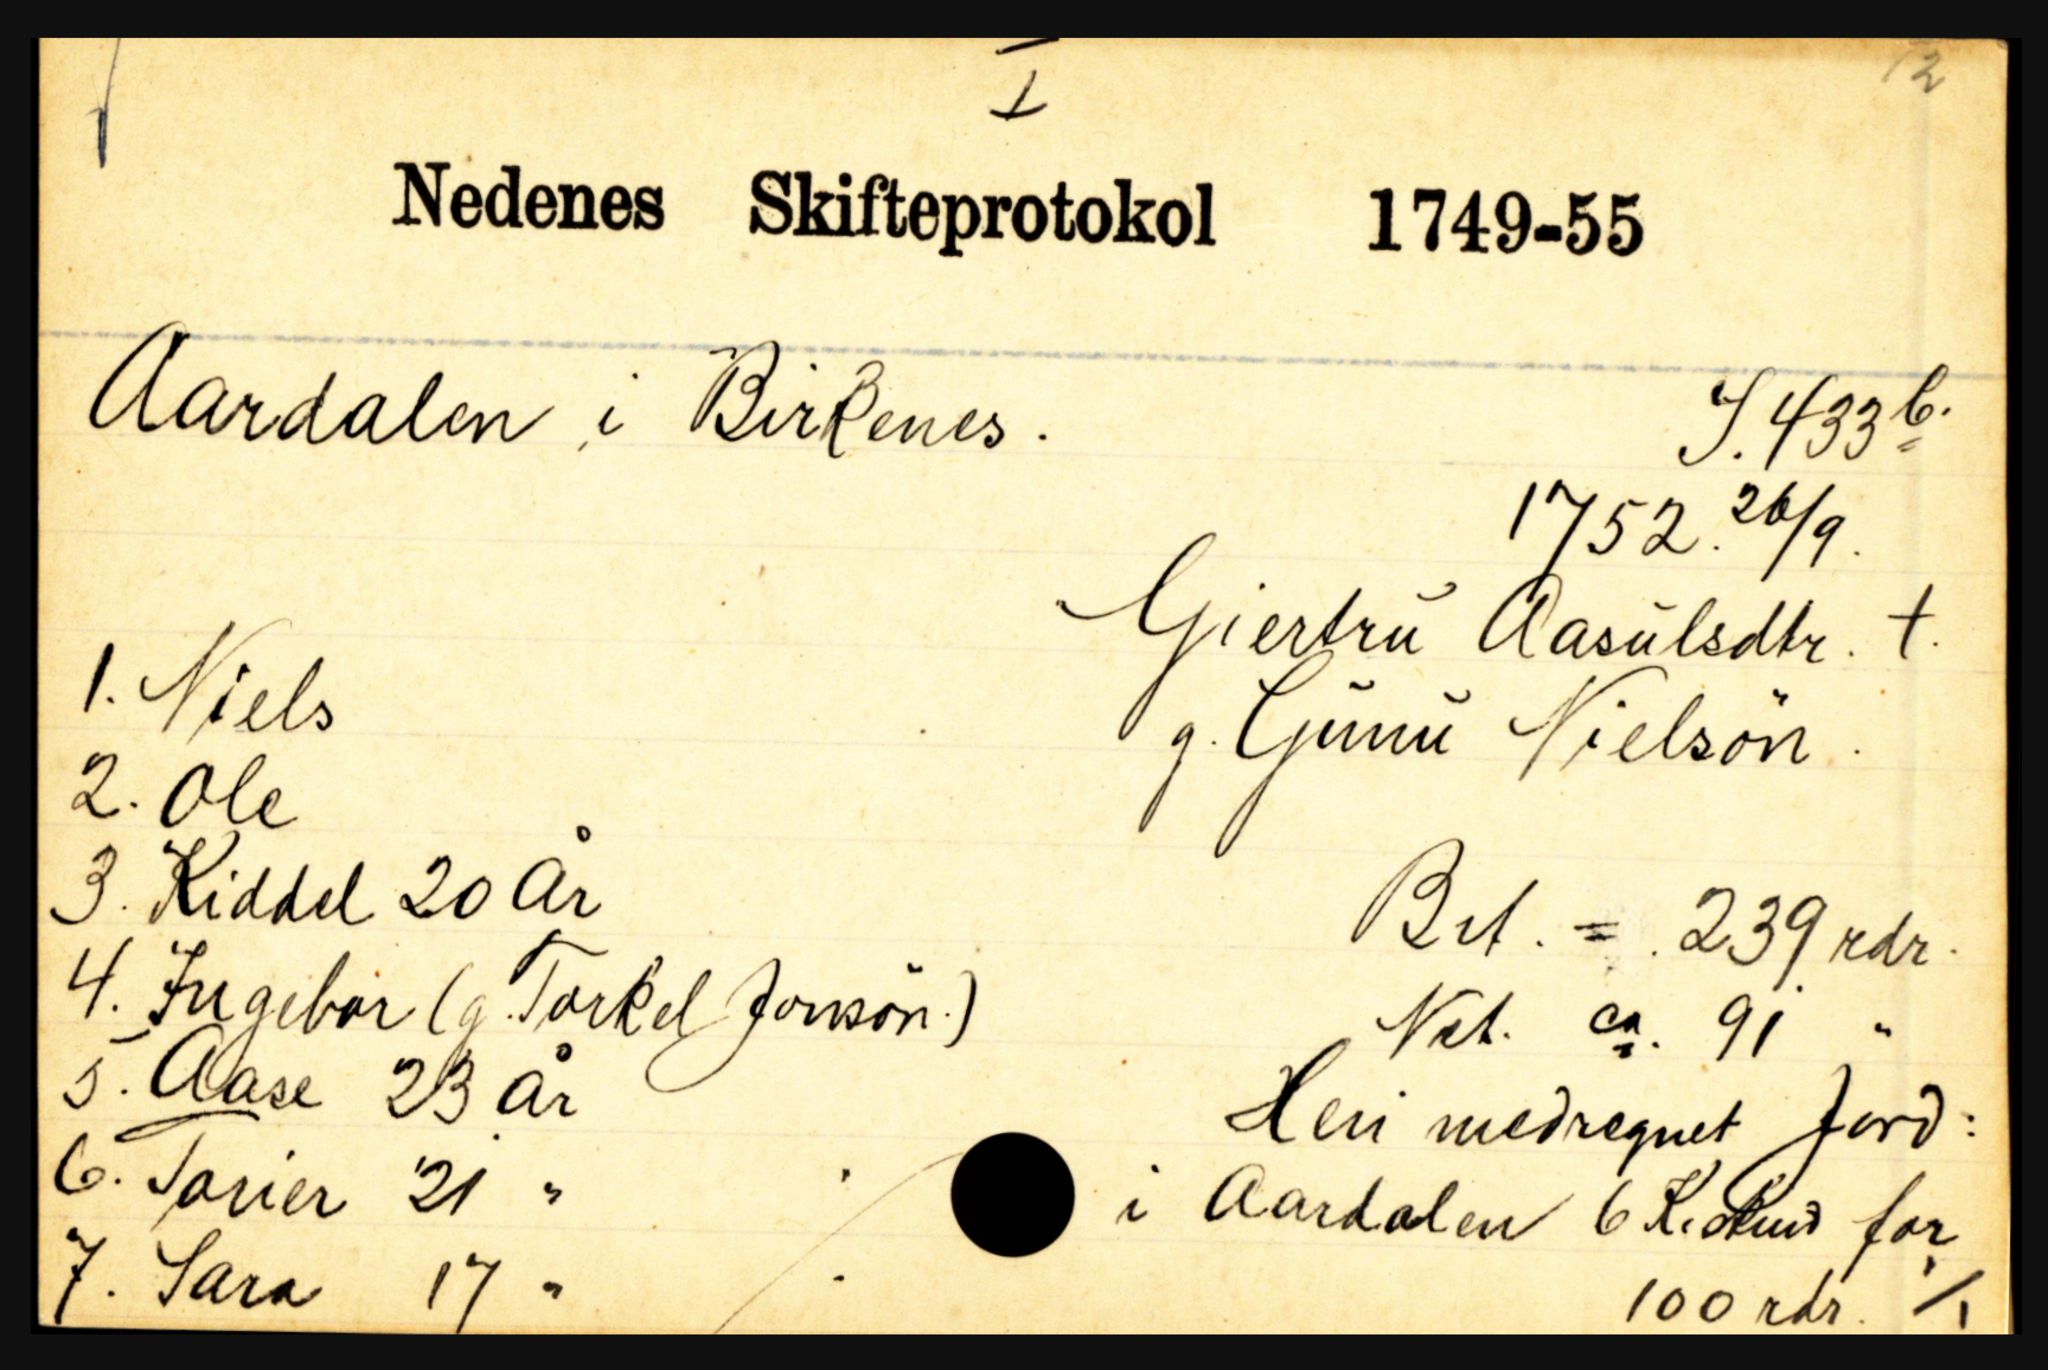 I
12
Nedenes Skifteprotokol 1749-55
Aardalen i Birkenes.
S. 433 b.
1752. 26/9.
Giertrū Aasūlsdtr. †.
g. Gūnū Nielsön.
1. Niels
2. Ole
3. Kiddel 20 År
4. Ingebor (g. Torkel Jonsön.)
5. Aase 23 År
6. Torier 21 "
7. Sara 17 "
Brt. = 239 rdr.
Net. ca. 91 "
Heri medregnet Jord:
i Aardalen 6 K. skind for
100 rdr. ./.